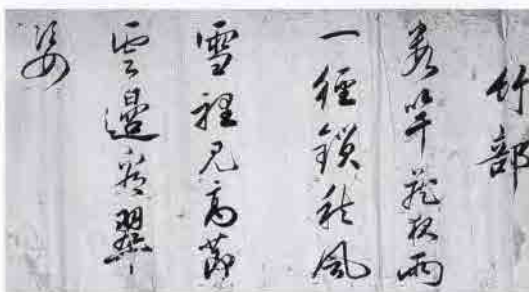 竹部
竿夜雨
一徑鎖秋風
雪裡見高節
雲邊看翠
姿